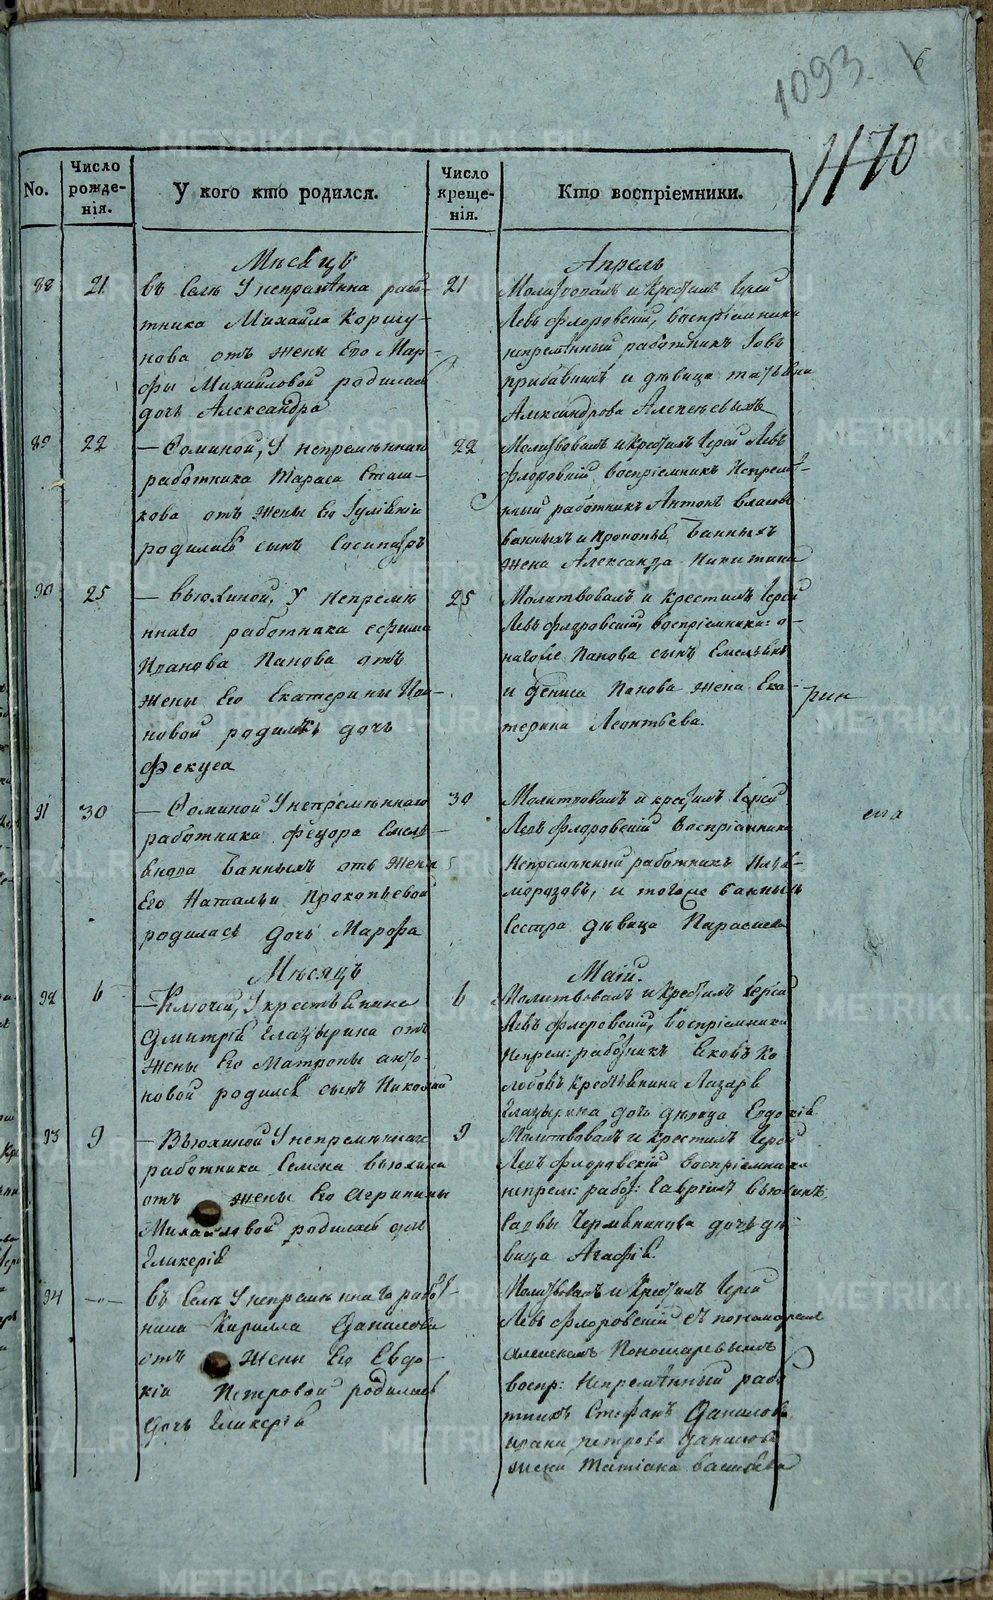 1093
6
1170
No.
Число рожде-нія.
У кого кто родился.
Число креще-нія.
Кто воспріемники.
Мѣсяцъ
Апрель
88
21
въ Селѣ У непремѣнна рабо-
тника Михаила Коршу-
нова отъ жены Его Мар-
фы Михайловой родилась
дочь Александра
21
Молитвовалъ и Крестилъ Іерей
Левъ Флоровскій, воспріемники
непремѣнный работникъ Іовъ
и дѣвица
Александрова
89
22
— Фоминой, У непремѣннаго
работника Тараса Сташ-
кова отъ жены Его Іуліяніи
родился сынъ Сосипатръ
22
Молитвовалъ и крестилъ Іерей Левъ
Флоровскій воспріемникъ Непремѣ-
нный работникъ Антонъ Власовъ
Банныхъ и Прокопья Банныхъ
жена Александра Никитина
90
25
— Вьюхиной, У Непремѣ
ннаго работника Ефима
Иванова Панова отъ
жены Его Екатерины
новой родилась дочь
Фекуса
25
Молитвовалъ и крестилъ Іерей
Левъ Флоровскій, воспріемники: о-
нагоже Панова сынъ Емельянъ
и Дениса Панова жена Ека-
терина Леонтьева.
рин
91
30
— Фоминой У непремѣннаго
работника Федора Емель-
янова Банныхъ отъ жены
Его Натальи Прокопьевой
родилась дочь Марфа
30
Молитвовалъ и крестилъ Іерей
Левъ Флоровскій воспріемники
Непремѣнный работникъ
Морозовъ, и тогоже Банныхъ
Сестра дѣвица Параскева
Мѣсяцъ
Маій.
92
6
— Ключей, У крестьянина
Дмитрія Глазырина отъ
жены Его Матроны Анто-
новой родился сынъ Николай
6
Молитвовалъ и Крестилъ Іерей
Левъ Флоровскій, воспріемники
Непрем: работникъ Яковъ Ко
лобовъ Крестьянина Лазаря
Глазырина дочь дѣвица Евдокія
93
9
— Вьюхиной У непремѣннаго
работника Семена Вьюхина
отъ жены Его Агрипины
Михайловой родилась дочь
Гликерія
9
Молитвовалъ и Крестилъ Іерей
Левъ Флоровскій воспріемники
непрем: рабо: Гавріилъ Вьюхинъ,
Саввы Черм҃янинова дочь дѣ
вица Агафія.
94
—„—
въ Селѣ У непремѣннаго работ-
ника Кирилла Данилова
отъ жены Его Евдо-
кіи Петровой родилась
дочь Гликерія
Молитвовалъ и Крестилъ Іерей
Левъ Флоровскій съ пономаремъ
Алексѣемъ Пономаревымъ
воспр: Непремѣнный рабо
тникъ Стефанъ Даниловъ
Ивана Петрова Данилова
жена Татіана Васильева